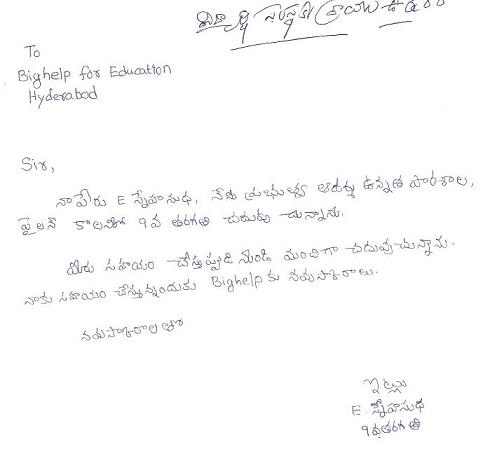 విద్యార్థి
To
Bighelp for Education
Hyderabad
Sir,
నా పేరు E స్నేహసుధ, నేను ప్రభుత్వ ఆదర్శ ఉన్నత పాఠశాల,
పైలన్ కాలనిలో 9వ తరగతి చదువు చున్నాను.
మీరు సహయం చేస్తప్పుడి నుండి మంచిగా చదువుచున్నాను.
నాకు సహయం చేస్తున్నందుకు Bighelp కు నమస్కారాలు.
నమస్కారాలతో
ఇట్లు
E. స్నేహసుధ
9వతరగతి